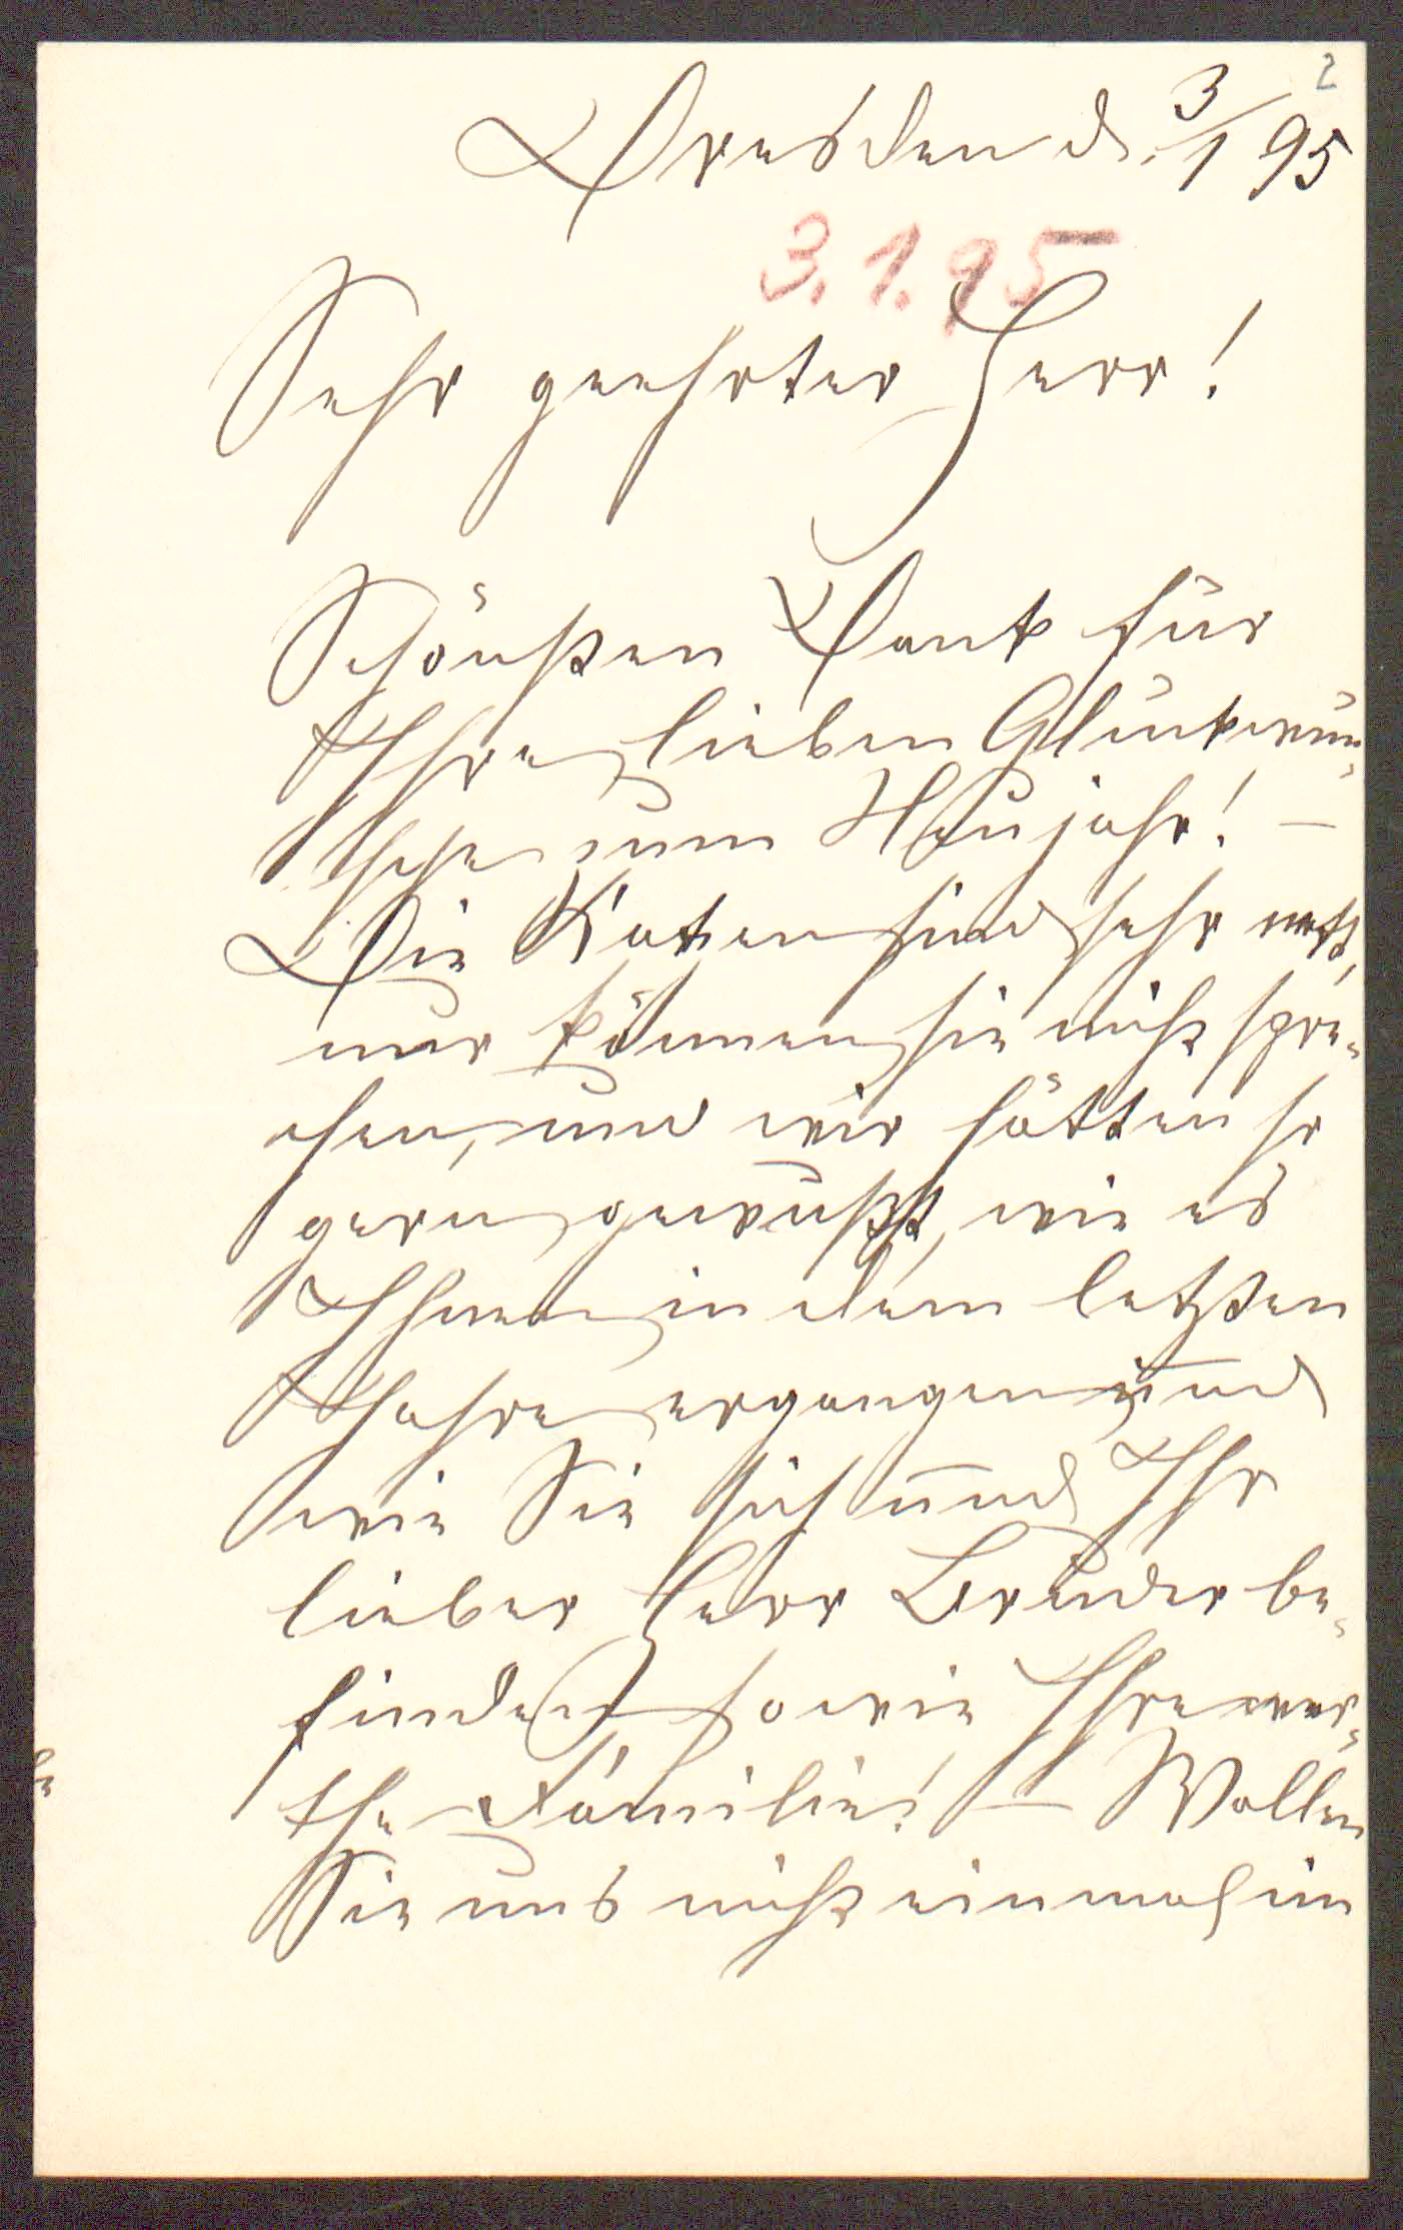 2
Dresden d. 3/1 95
3.1.95
Sehr geehrter Herr!
Schönsten Dank für
Ihre lieben Glückwün-
sche zum Neujahr! —
Die Katzen sind sehr nett,
nur können sie nicht spre-
chen, und wir hätten so
gern gewußt, wie es
Ihnen in dem letzten
Jahre ergangen und
wie Sie sich und Ihr
lieber Herr Bruder be-
finden sowie Ihre wer-
the Familie! — Wollen
Sie uns nicht einmal im